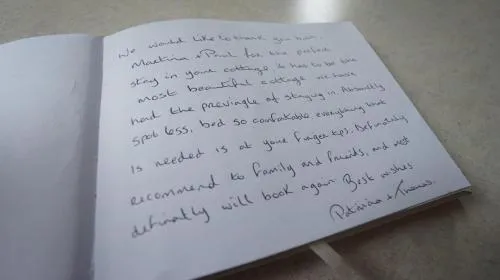 We would like to thank you both,
Martina + Paul for the perfect
stay in your cottage. It has to be the
most beautiful cottage we have
had the previagle of staying in. Absoutly
spotless, bed so comfortable everything that
is needed is at your fingertips. Definately
recommend to family and friends, and west
definatly will book again Best wishes
Patricia + Thomas.